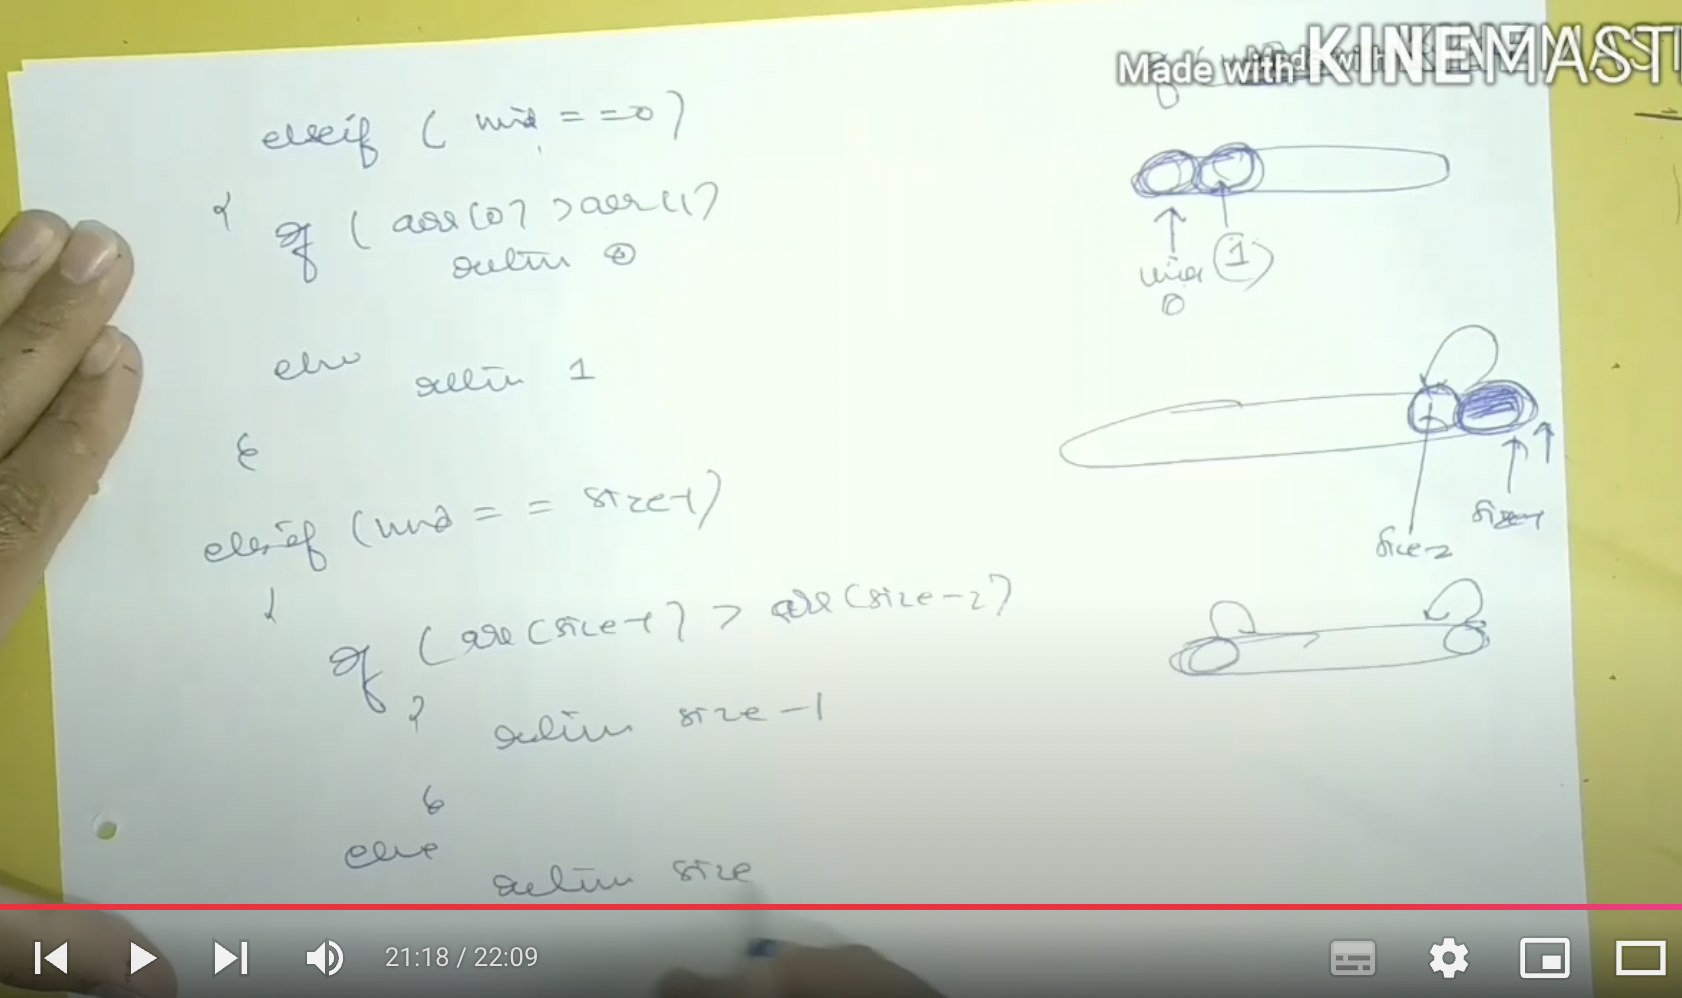 Made with KINEMAST
elseif ( mid = = 0 )
{ if ( arr[0] > arr[1]
return 0
else return 1
}
elseif (mid = = size-1)
{
if ( arr[size-1] > arr[size-2]
{ return size-1
}
else
return size
mid 1
0
size-2
size-1
21:18 / 22:09